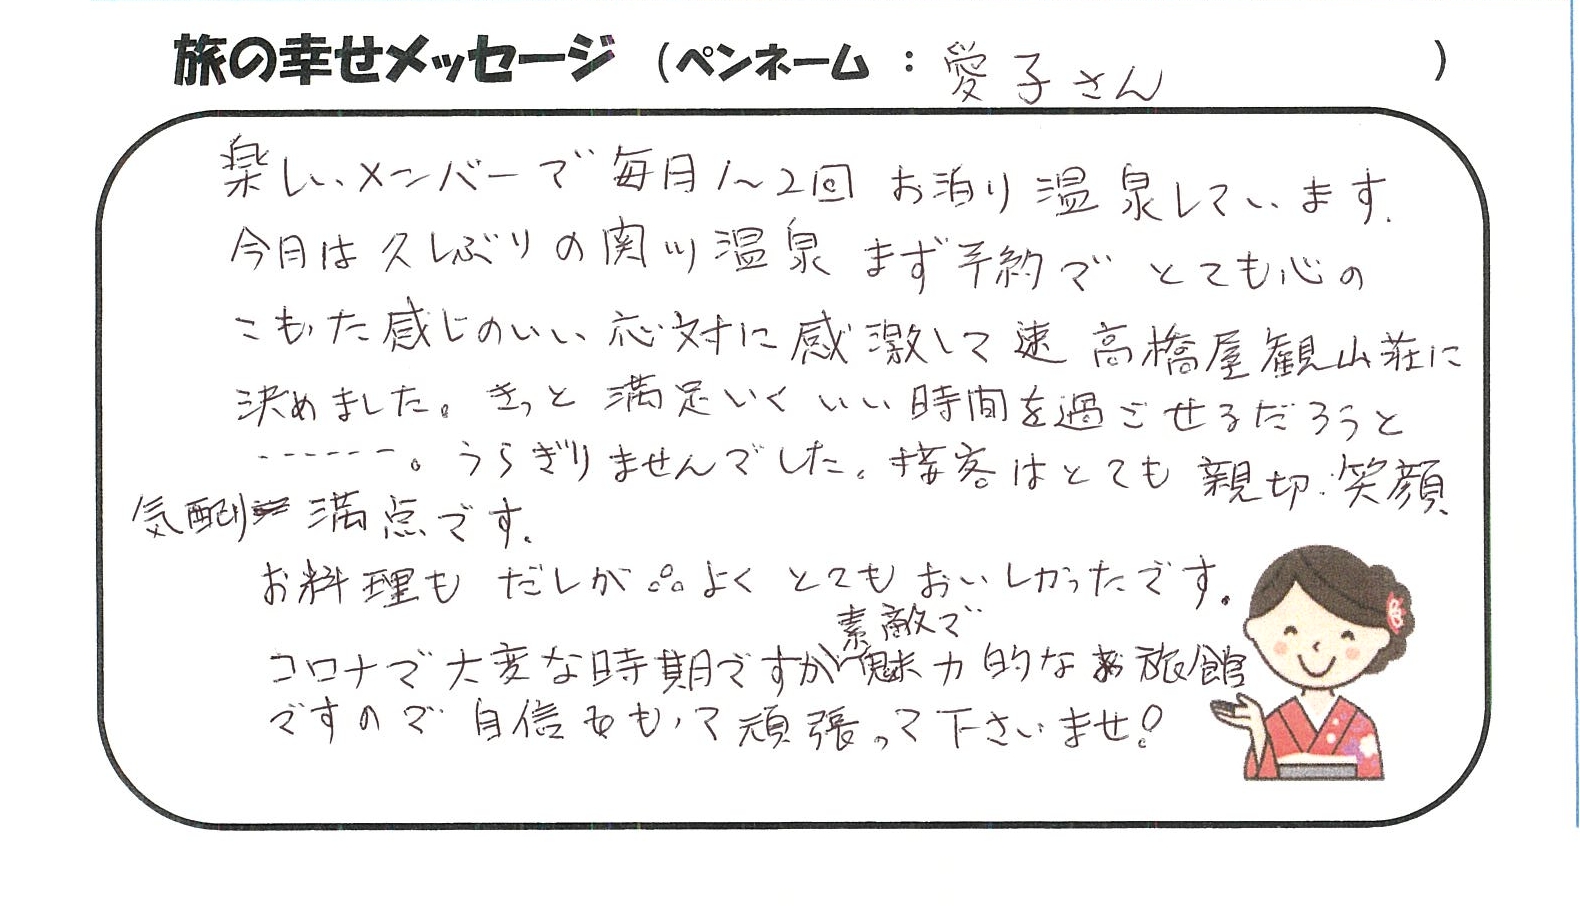 旅の幸せメッセージ (ペンネーム : 愛子さん )
楽しいメンバーで毎月1〜2回 お泊り温泉しています.
今月は久しぶりの関川温泉 まず予約で とても心の
こもった感じのいい応対に感激して速 高橋屋観山荘に
決めました。きっと満足いくいい時間を過ごせるだろうと
------。うらぎりませんでした。接客はとても親切.笑顔
気配り満点です.
お料理も だしが よく とてもおいしかったです.
素敵で
コロナで大変な時期ですが魅力的なお旅館
ですので自信をもって頑張って下さいませ!